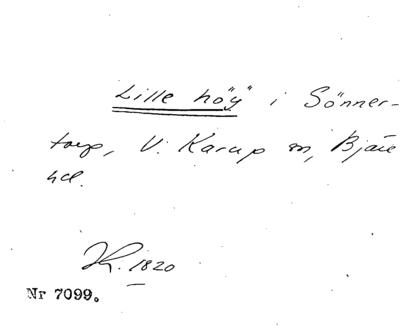 "Lille höy" i Sönner-
torp, V. Karup sn, Bjäre
hd.
1820
Nr 7099.